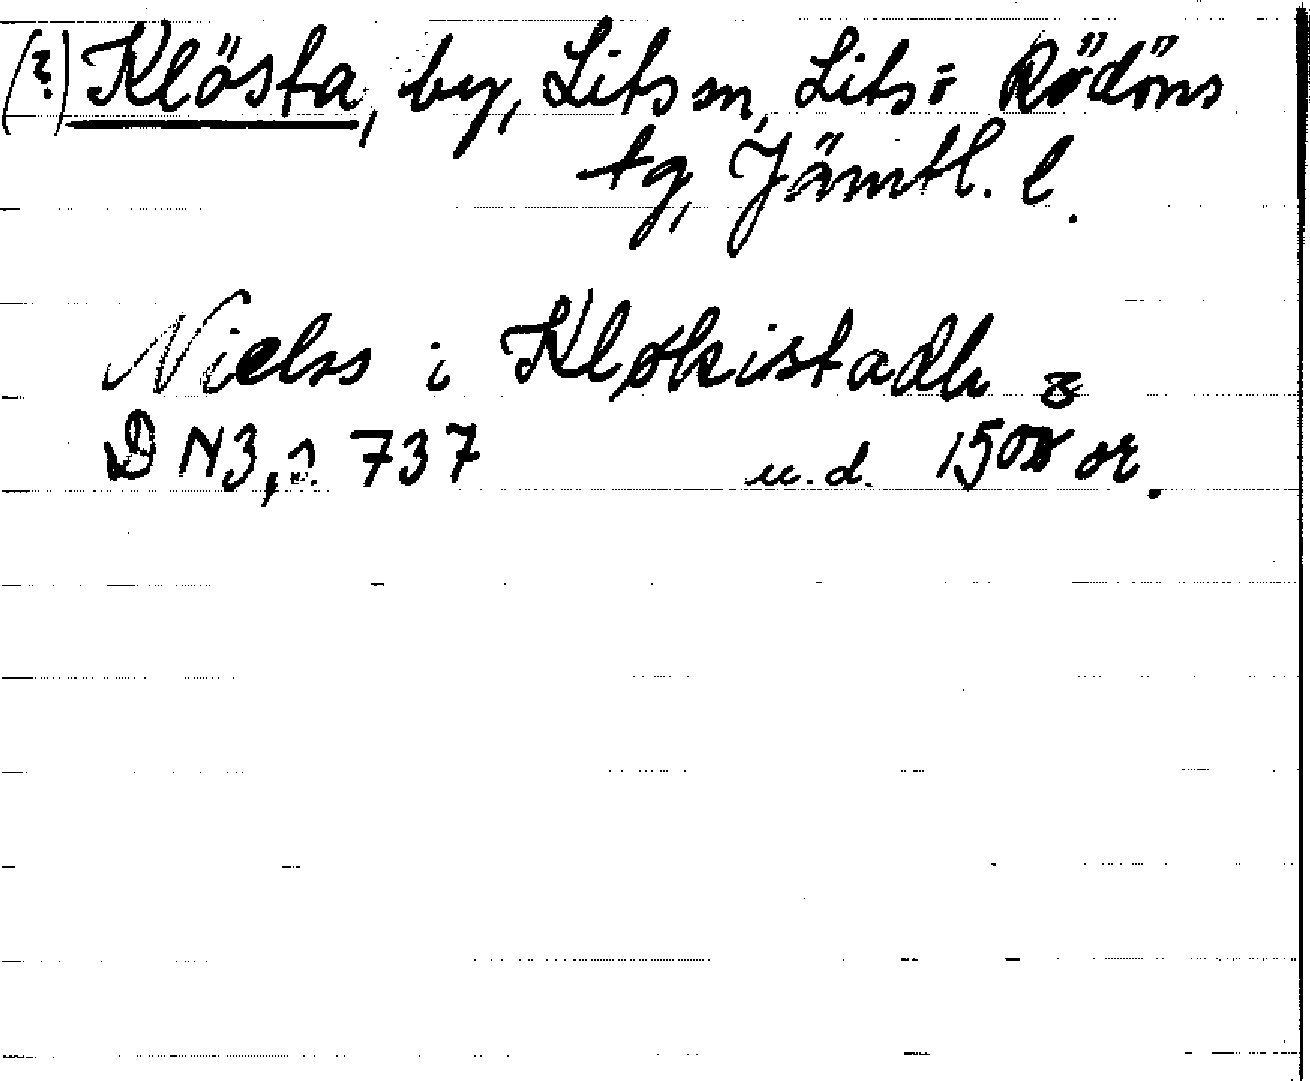 (?) Klösta, by, Lits sn, Lits o Rödöns
tg, Jämtl. l.
Nielss i Kløkistadh
DN3, s. 737 u.d. 1500 or.